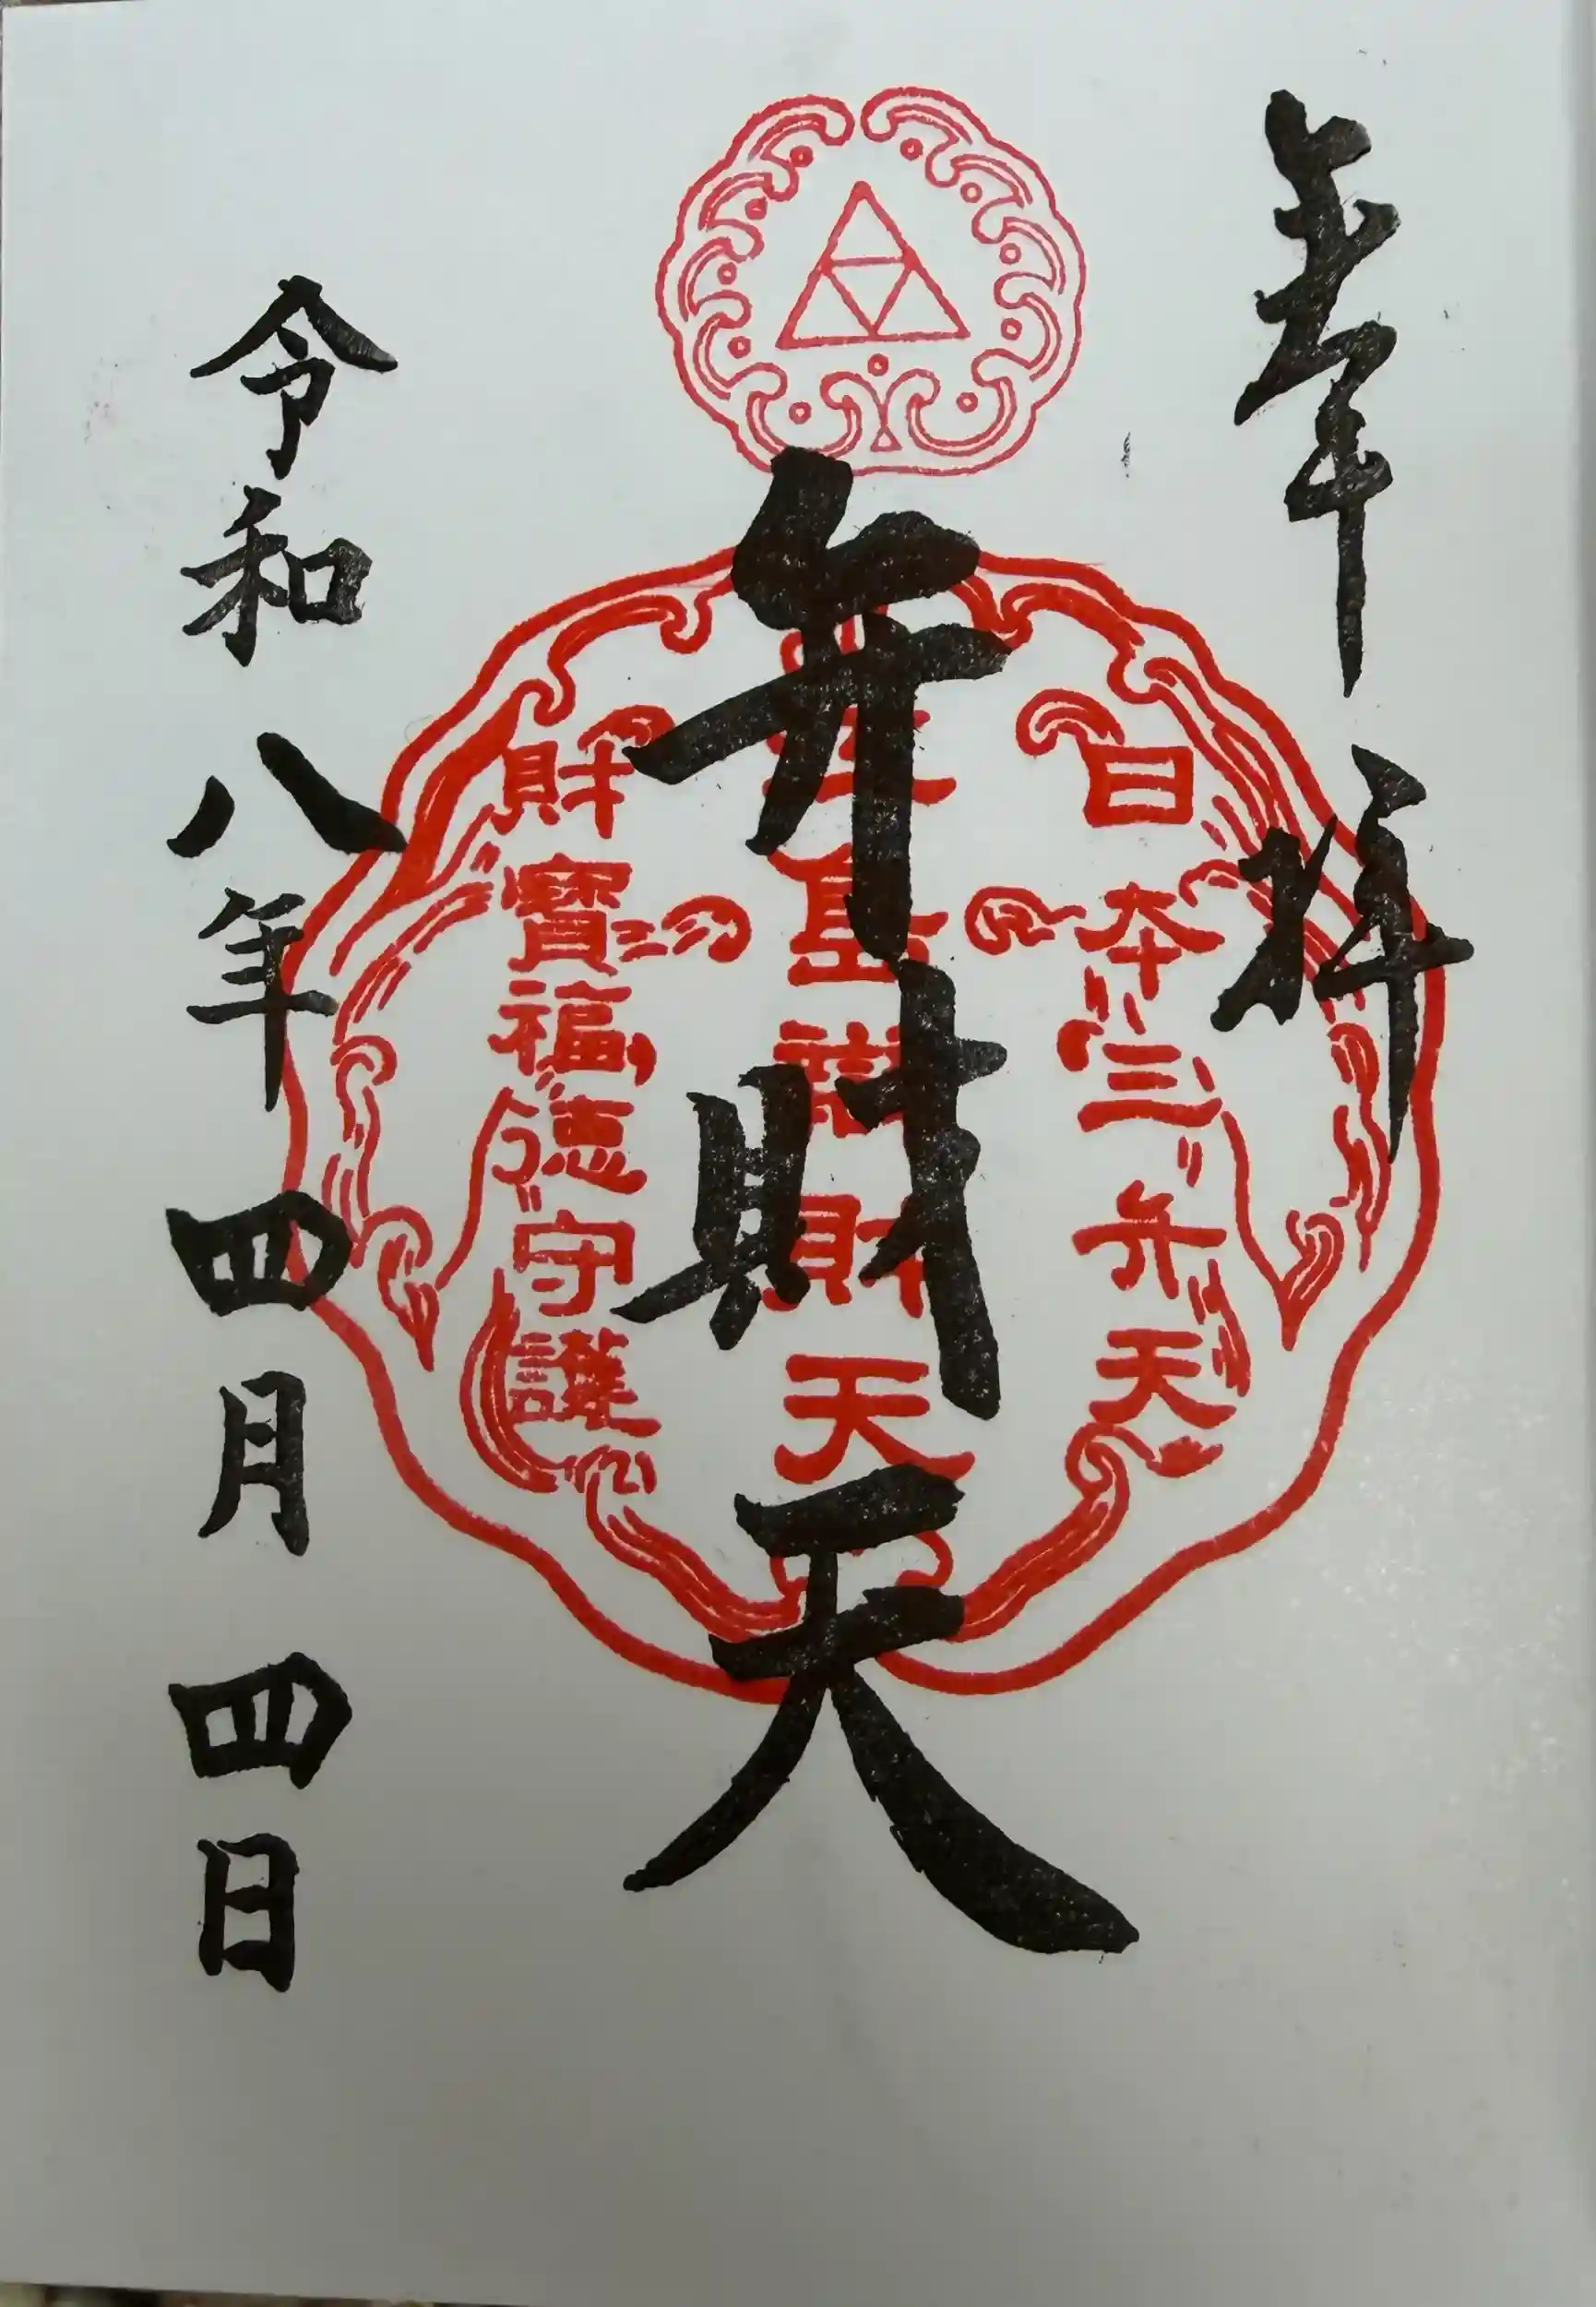 奉拝
日本三弁天
弁財天
島 財天
財寶福徳守護
令和八年四月四日